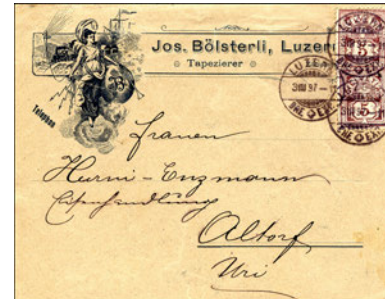 Jos. Bölsterli, Luzern
Tapezierer
Telephon
LUZERN
Frauen
Hurni-Enzmann
Eisenhandlung
Altorf
Uri